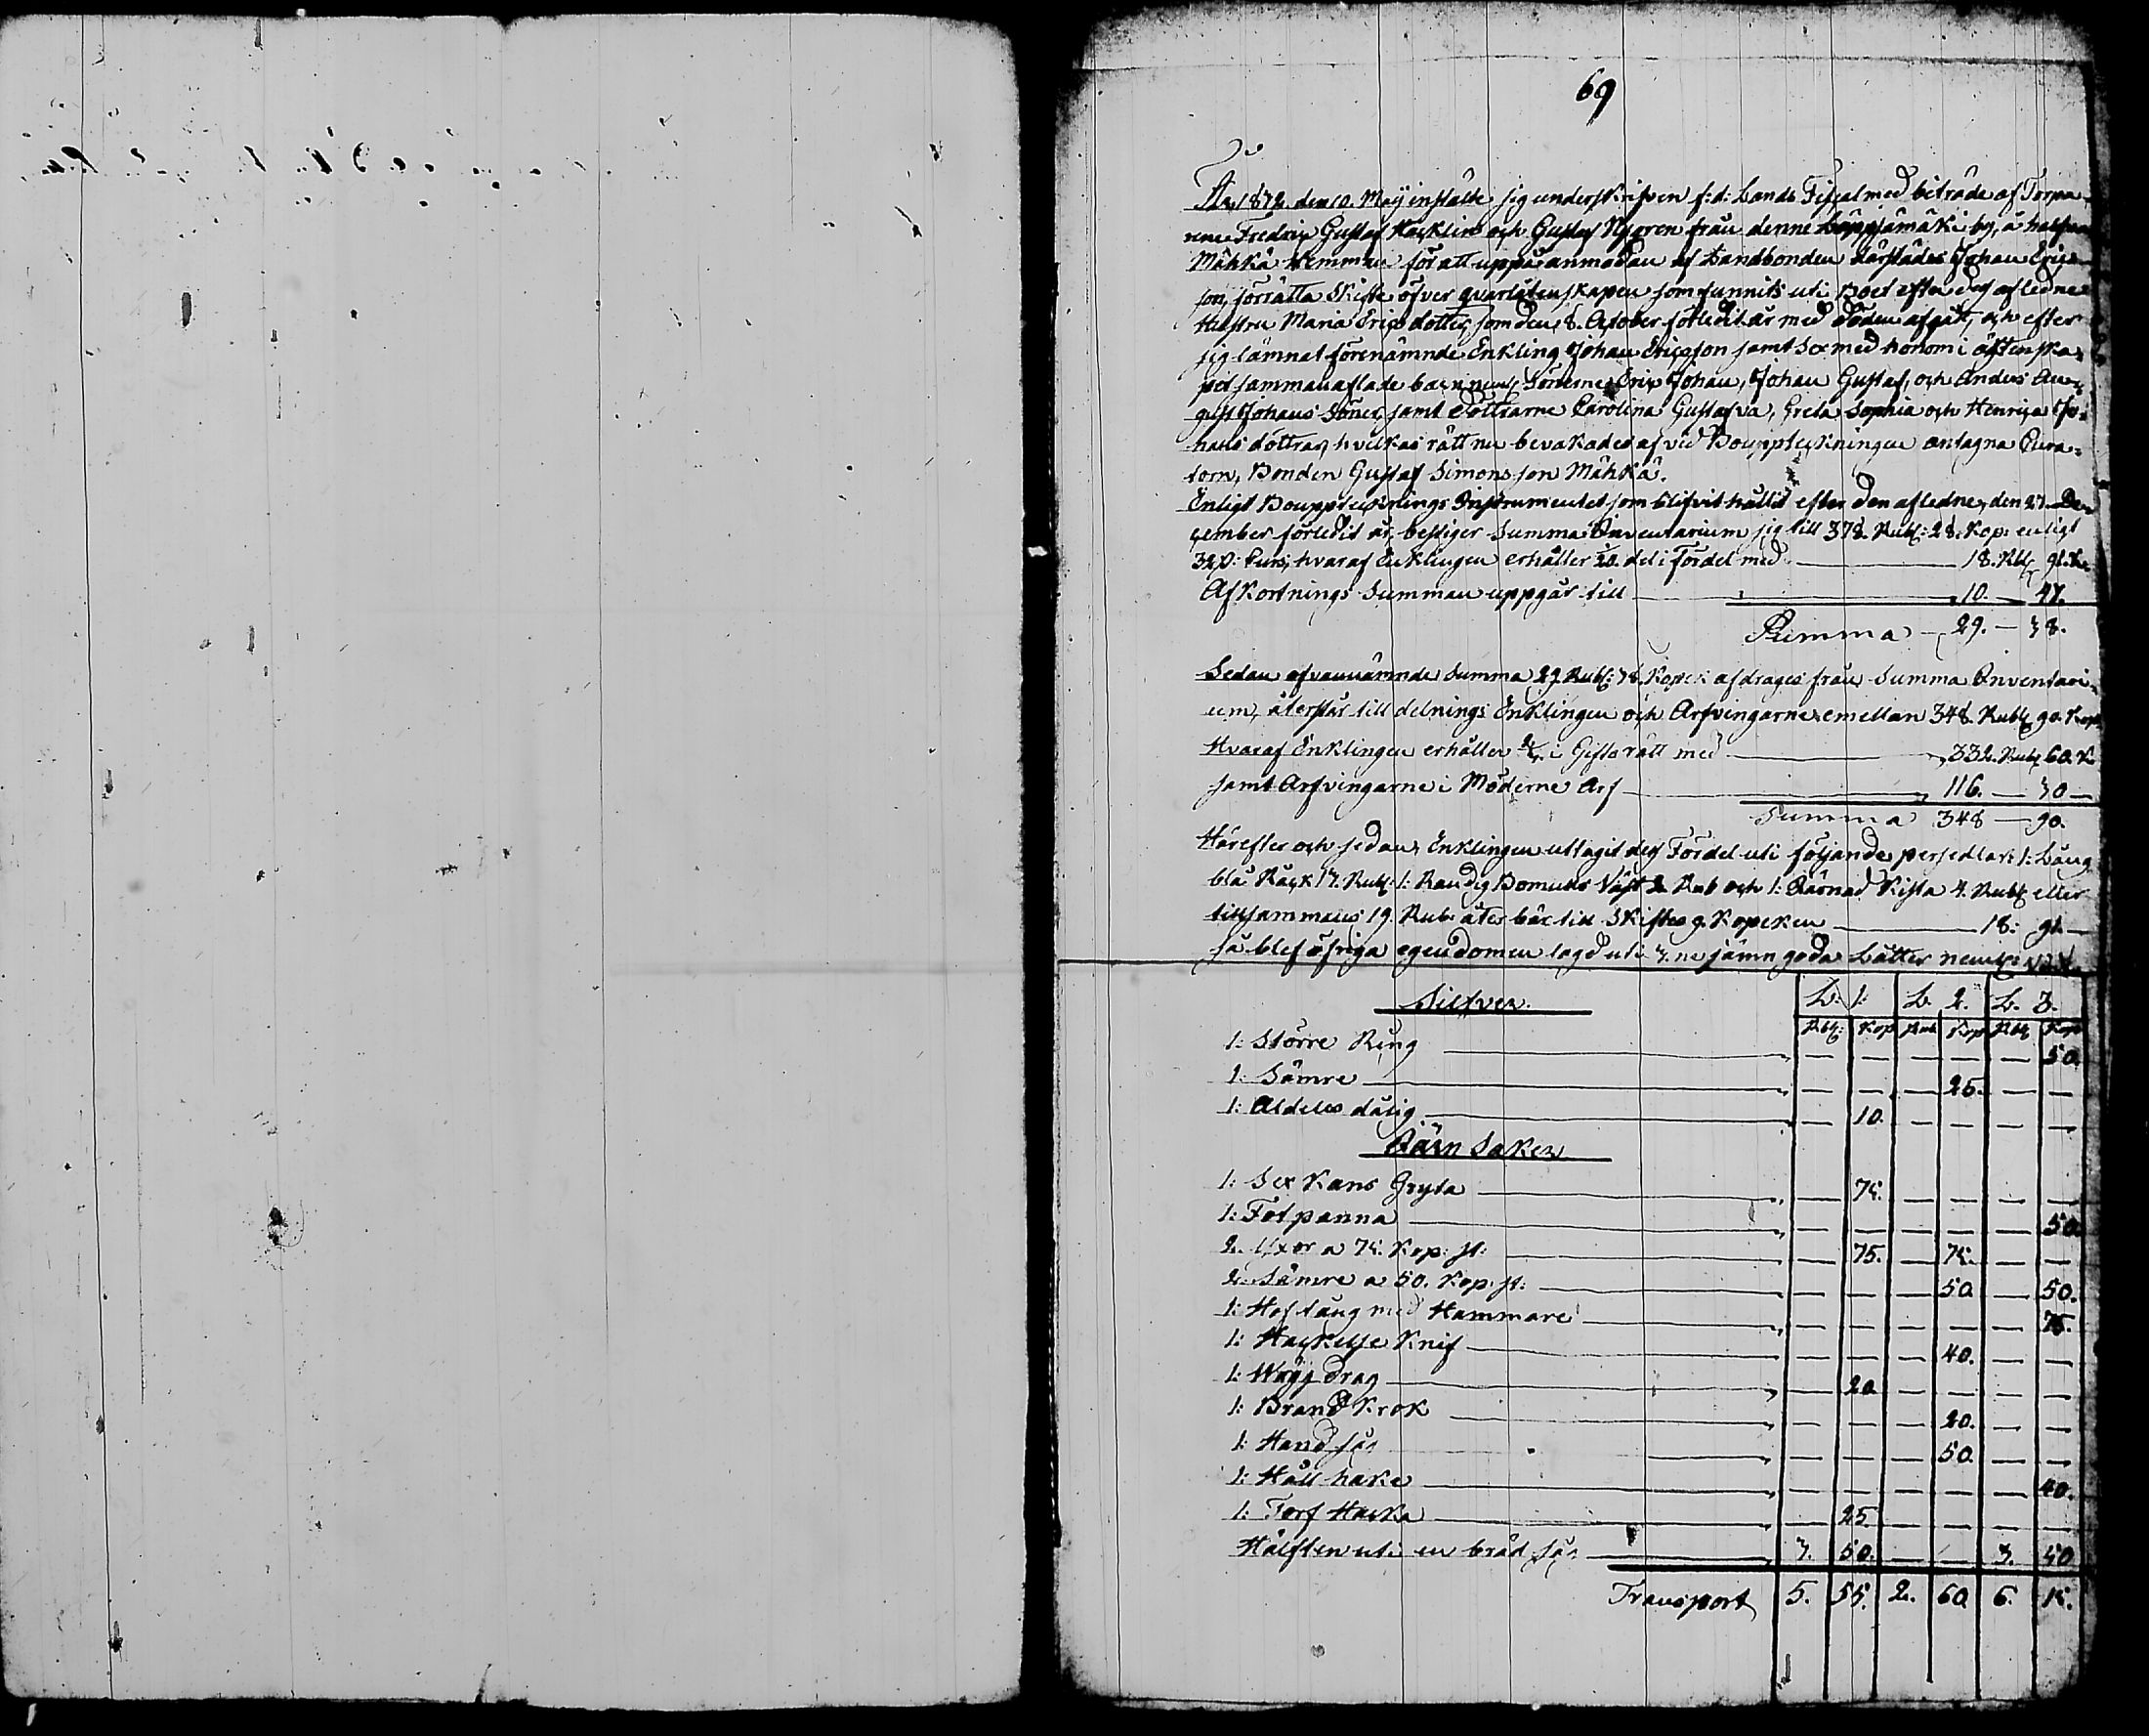 69
År 1872. den 10. Maij instälte sig underskrifven f:d: Lands Fiscal med biträde af Torpa-
rene Fredrik Gustaf Häcklin och Gustaf Nygren från denne Läppjämäki by, å halfva
Mähkä Hemman för att uppå anmodan af Landbonden därstädes Johan Erics-
son, förrätta Skifte öfver qvarlåtenskapen som funnits uti Boet efter dess aflednes
Hustru Maria Ericsdotter, som den 8. October förledit år med döden afgått, och efter
sig lämnat förenämnde Enkling Johan Ericsson samt Sex med honom i äktenska-
pet sammanaflade barn neml: Sönerne Eric Johan, Johan Gustaf, och Anders Au-
gust Johans Söner, samt Döttrarne Carolina Gustafva, Greta Sophia och Henrica Jo-
hans döttrar, hvilkas rätt nu bevakades af vid Bouppteckningen antagna Cura-
torn, Bonden Gustaf Simonsson Mähkä.
Enligt Boupptecknings Instrumentet som blifvit hållit efter den afledne, den 27. De-
cember förledit år, bestiger Summa Inventarium sig till 378. Rub: 28. Kop: enligt
32 p: Curs, hvaraf Enklingen erhåller 1/20. del i Fördel med 18. Rbl 91. K.
Afkortnings Summan uppgår till 10. — 47.
Summa — 29. — 38.
Sedan ofvannämnde Summa 29 Rubl: 38. Kopek afdrages från Summa Inventari-
um, återstår till delnings Enklingen och Arfvingarne emellan 348. Rubl 90. Kop.
Hvaraf Enklingen erhåller 2/3. i Giftorätt med 232. Rubl 60. K
samt Arfvingarne i Möderne Arf 116. — 30 —
Summa 348 — 90.
Härefter och sedan Enklingen uttagit dess Fördel uti följande persedlar: 1: Lång
blå Råck 13. Rub: 1: Randig Bomulls Väst 2 Rub och 1: Järnad Kista 4. Rubl eller
tillsammans 19. Rub: åter bär till Skiftes 9. Kopeken 18: 91. —
så blef öfriga egendomen lagd uti 3. ne jämngoda Låtter neml:
Silfver. L: 1: L. 2. L. 3.
Rbl: Kop Rub Kop Rbl Kop
1: Större Ring — — — — — 50.
1: Sämre — — — 25. — —
1: Aldeles dålig — 10. — — — —
Järn Saker
1: Sex Kans Gryta — 75. — — — —
1: Fotpanna — — — — — 50.
2. Yxor a 75. Kop: st: — 75. — 75. — —
2. Sämre a 50. Kop: st: — — — 50 — 50.
1: Hoftång med Hammare — — — — — 75.
1: Hackelse Knif — — — 40. — —
1: Wäg drag — 20 — — — —
1: Brand Krok — — — 20. — —
1: Hand såg — — — 50. — —
1: Håll hake — — — — — 40.
1: Torf Hacka — 25. — — — —
Hälften uti en bräd såg 3. 50. — — 3. 50
Transport 5. 55. 2. 60 6. 15.